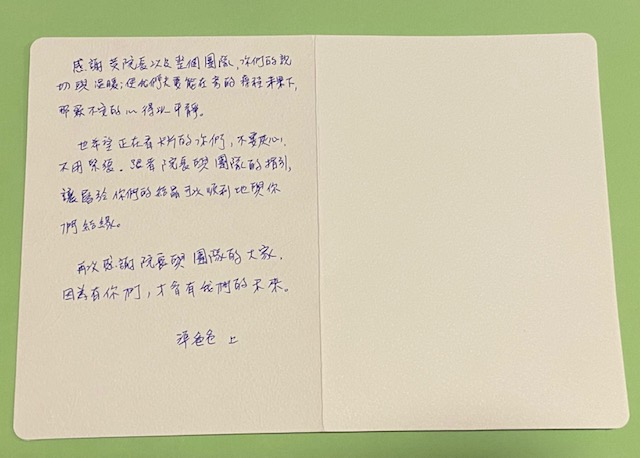 感謝 院長以及整個團隊,你們的親
切與溫暖;使我們夫妻能在 的療程 下,
那最不安的心 得以平靜。
也希望正在看卡片的你們,不要灰心,
不用緊張。跟著院長與團隊的指引,
讓屬於你們的結晶可以順利地與你
們結緣。
再次感謝院長與團隊的大家,
因為有你們,才會有我們的未來。
準爸爸 上